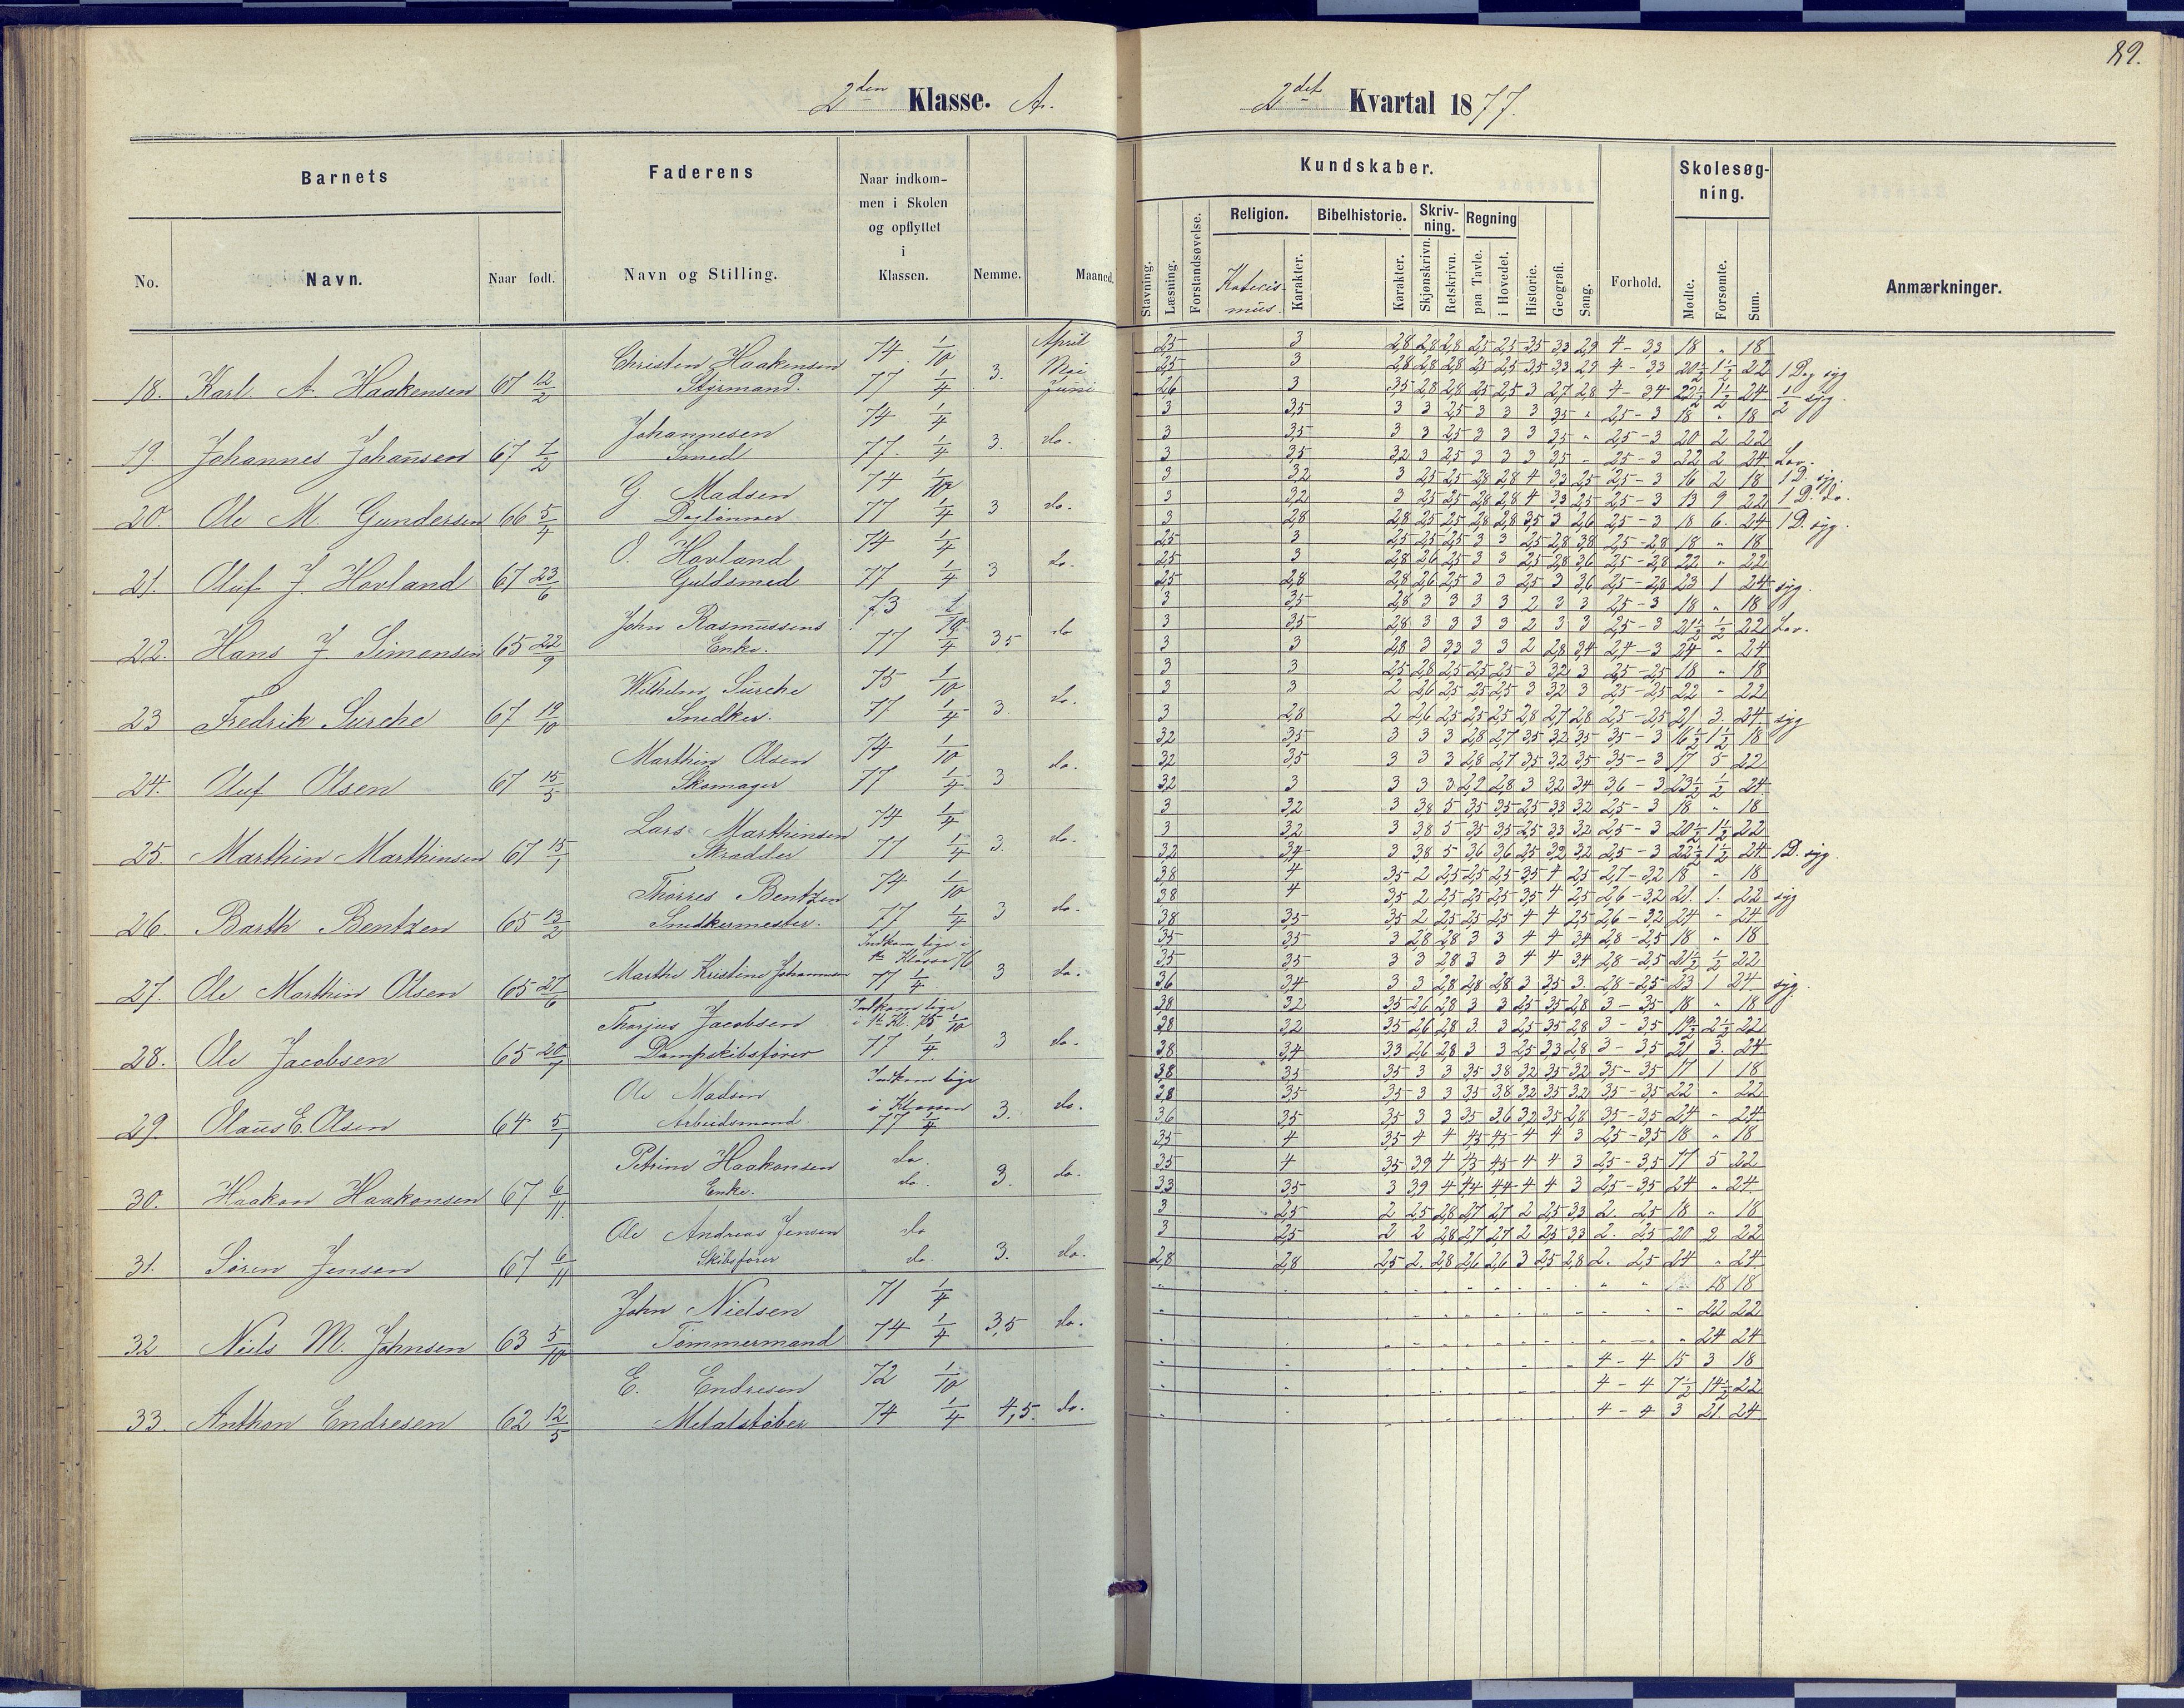 89.
2den Klasse. A.
2det Kvartal 1877.
Barnets
Faderens
Naar indkommen i Skolen og opflyttet i Klassen.
Nemme.
Maaned.
Kundskaber.
Forhold.
Skolesøgning.
Anmærkninger.
No.
Navn.
Naar født.
Navn og Stilling.
Stavning.
Læsning.
Forstandsøvelse.
Religion.
Katecismus.
Karakter.
Bibelhistorie.
Karakter.
Skrivning.
Skjønskrivn.
Retskrivn.
Regning
paa Tavle.
i Hovedet.
Historie.
Geografi.
Sang.
Mødte.
Forsømte.
Sum.
18. Karl A. Haakensen 67 12/2 Christen Haakensen Styrmand. 74 1/10 77 1/4 3. April Mai Juni
2,5 3 2,8 2,8 2,8 2,5 2,5 3,5 3,3 2,9 4 - 3,3 18 " 18
2,5 3 2,8 2,8 2,8 2,5 2,5 3,5 3,3 2,9 4 - 3,3 20½ 1½ 22 1 Dag syg
2,6 3 3,5 2,8 2,8 2,5 2,5 3 2,7 2,8 4 - 3,4 22½ 1½ 24 ½ syg.
19. Johannes Johansen 67 7/2 Johannesen Smed 74 1/4 77 1/4 3. do.
3 3,5 3 3 2,5 3 3 3 3,5 " 2,5 - 3 18 " 18
3 3,5 3 3 2,5 3 3 3 3,5 " 2,5 - 3 20 2 22
3 3,5 3,2 3 2,5 3 3 3 3,5 " 2,5 - 3 22 2 24 Lov.
20. Ole M. Gundersen 66 5/4 G. Madsen Daglønner 74 1/10 77 1/4 3 do.
3 3,2 3 2,5 2,5 2,8 2,8 4 3,3 2,5 2,5 - 3 16 2 18 1 D. syg.
3 3,2 3 2,5 2,5 2,8 2,8 4 3,3 2,5 2,5 - 3 13 9 22 1 D. do.
3 2,8 2,8 2,5 2,5 2,8 2,8 3,5 3 2,6 2,5 - 3 18 6. 24 1 D. syg.
21. Oluf J. Hovland 67 23/6 O. Hovland Guldsmed 74 1/4 77 1/4 3 do.
2,5 3 2,5 2,5 2,5 3 3 2,5 2,8 3,8 2,5 - 2,8 18 " 18
2,5 3 2,8 2,6 2,5 3 3 2,5 2,8 3,6 2,5 - 2,8 22 " 22
2,5 2,8 2,8 2,6 2,5 3 3 2,5 3 3,6 2,5 - 2,8 23 1 24 syg.
22. Hans J. Simonsen 65 22/9 John Rasmussens Enke. 73 1/10 77 1/4 3,5 do
3 3,5 2,8 3 3 3 3 2 3 3 2,5 - 3 18 " 18
3 3,5 2,8 3 3 3 3 2 3 3 2,5 - 3 21½ ½ 22 Lov.
3 3 2,8 3 3,3 3 3 2 2,8 3,4 2,4 - 3 24 " 24
23 Fredrik Sürche 67 19/10 Wilhelm Sürche Snedker. 75 1/10 77 1/4 3. do.
3 3 2,5 2,8 2,5 2,5 2,5 3 3,2 3 2,5 - 2,5 18 " 18
3 3 2 2,6 2,5 2,5 2,5 3 3,2 3 2,5 - 2,5 22 " 22
3 2,8 2 2,6 2,5 2,5 2,5 2,8 2,7 2,8 2,5 - 2,5 21 3. 24 syg
24. Oluf Olsen 67 15/5 Marthin Olsen Skomager 74 1/10 77 1/4 3 do.
3,2 3,5 3 3 3 2,8 2,7 3,5 3,2 3,5 3,5 - 3 16½ 1½ 18
3,2 3,5 3 3 3 2,8 2,7 3,5 3,2 3,5 3,5 - 3 17 5 22
3,2 3 3 3 3 2,9 2,8 3 3,2 3,4 3,6 - 3 23½ ½ 24
25. Marthin Marthinsen 67 15/1 Lars Marthinsen Skrædder 74 1/4 77 1/4 3. do.
3 3,2 3 3,8 5 3,5 3,5 2,5 3,3 3,2 2,5 - 3 18 " 18
3 3,2 3 3,8 5 3,5 3,5 2,5 3,3 3,2 2,5 - 3 20½ 1½ 22
3,2 3,4 3 3,8 5 3,6 3,6 2,5 3,2 3,2 2,5 - 3 22½ 1½ 24 1 D. syg.
26. Barth Bentzen 65 13/2 Thorres Bentzen Snedkermester. 74 1/10 77 1/4 3 do.
3,8 4 3,5 2 2,5 2,5 2,5 3,5 4 2,5 2,7 - 3,2 18 " 18
3,8 4 3,5 2 2,5 2,5 2,5 3,5 4 2,5 2,6 - 3,2 21. 1. 22 syg
3,8 3,5 3,5 2 2,5 2,5 2,5 4 4 2,5 2,6 - 3,2 24 " 24
27. Ole Marthin Olsen 65 27/6 Marthe Kristine Johannesen Indkom lige i 1ste Klasse 76 77 1/4. 3 do.
3,5 3,5 3 2,8 2,8 3 3 4 4 3,4 2,8 - 2,5 18 " 18
3,5 3,5 3 3 2,8 3 3 4 4 3,4 2,8 - 2,5 21½ ½ 22
3,6 3,4 3 3 2,8 2,8 2,8 3 3,5 3. 2,8 - 2,5 23 1 24 syg.
28. Ole Jacobsen 65 20/7 Thorjus Jacobsen Dampskibsfører Indkom lige i 1ste Kl. 75 1/10 77 1/4 3 do.
3,8 3,2 3,5 2,6 2,8 3 3 2,5 3,5 2,8 3 - 3,5 18 " 18
3,8 3,2 3,5 2,6 2,8 3. 3 2,5 3,5 2,8 3 - 3,5 19½ 2½ 22
3,8 3,4 3,3 2,6 2,8 3 3 2,5 3,3 2,8 3 - 3,5 21 3. 24
29. Olaüs E. Olsen 64 5/1 Ole Madsen Arbeidsmand Indkom lige i Klassen 77 1/4 3. do.
3,8 3,5 3,5 3 3 3,5 3,8 3,2 3,5 3,2 3,5 - 3,5 17 1 18
3,8 3,5 3,5 3 3 3,5 3,8 3,2 3,5 3,2 3,5 - 3,5 22 " 22
3,6 3,5 3,5 3 3 3,5 3,6 3,2 3,5 2,8 3,5 - 3,5 24 " 24
30. Haakon Haakonsen 67 6/11. Petrine Haakonsen Enke. do. do. 3. do.
3,5 4 3,5 4 4 4,5 4,5 4 4 3 2,5 - 3,5 18 " 18
3,5 4 3,5 3,9 4 4,5 4,5 4 4 3 2,5 - 3,5 17 5 22
3,3 3,5 3 3,9 4 4,4 4,4 4 4 3 2,5 - 3,5 24 " 24
31. Sören Jensen 67 6/11 Ole Andreas Jensen Skibsfører do do. 3. do.
3 2,5 2 2,5 2,8 2,7 2,7 2 2,5 3,3 2. 2,5 18 " 18
3 2,5 2 2 2,8 2,7 2,7 2 2,5 3,3 2. 2,5 20 2 22
2,8 2,8 2,5 2. 2,8 2,6 2,6 3 2,5 2,8 2. 2,5 24 " 24
32 Niels M. Johnsen 63 5/10 John Nielsen Tømmermand 71 1/4 74 1/4 3,5 do.
18 18
22 22
24 24
33. Anthon Endresen 62 12/5 E. Endresen Metalstøber 72 1/10 74 1/4 4,5. do.
4 - 4 15 3 18
4 - 4 7½ 14½ 22
4 - 4 3 21 24